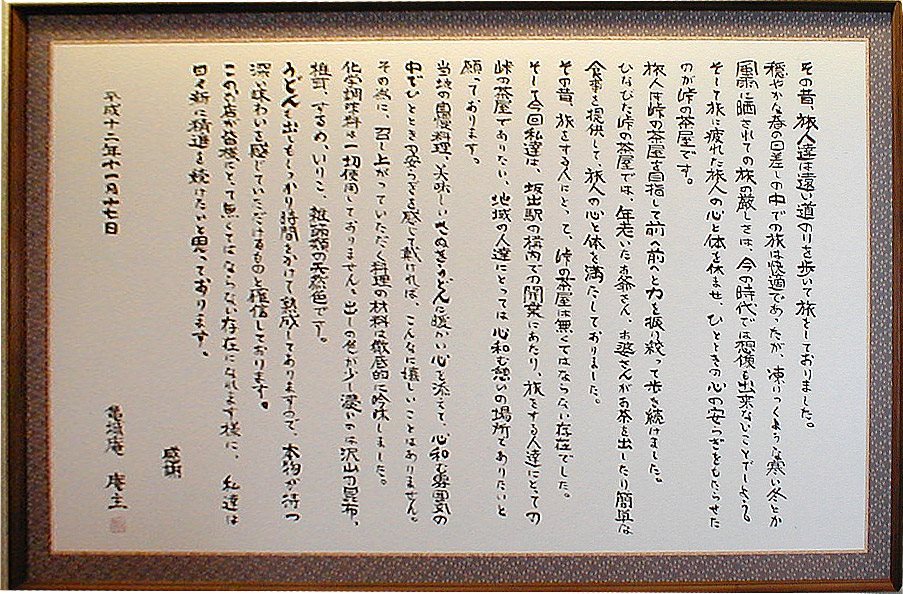 その昔、旅人達は遠い道のりを歩いて旅をしておりました。
穏やかな春の日差しの中での旅は快適であったが、凍りつくような寒い冬とか
風雨に晒されての旅の厳しさは、今の時代では想像も出来ないことでしょう。
そして旅に疲れた旅人の心と体を休ませ、ひとときの心の安らぎをもたらせた
のが峠の茶屋です。
旅人は峠の茶屋を目指して前へ前へと力を振り絞って歩き続けました。
ひなびた峠の茶屋では、年老いたお爺さん、お婆さんがお茶を出したり簡単な
食事を提供して、旅人の心と体を満たしておりました。
その昔、旅をする人にとって、峠の茶屋は無くてはならない存在でした。
そして今回私達は、坂出駅の構内での開業にあたり、旅をする人達にとっての
峠の茶屋でありたい、地域の人達にとっては心和む憩いの場所でありたいと
願っております。
当地の自慢料理、美味しいさぬきうどんに暖かい心を添えて、心和む雰囲気の
中でひとときの安らぎを感じて戴ければ、こんなに嬉しいことはありません。
その為に、召し上がっていただく料理の材料は徹底的に吟味しました。
化学調味料は一切使用しておりません。出しの色が少し濃いのは沢山の昆布、
椎茸、するめ、いりこ、雑節類の天然色です。
うどんも出しもしっかり時間をかけて熟成してありますので、本物が持つ
深い味わいを感じていただけるものと確信しております。
このお店が皆様にとって無くてはならない存在になれます様に、私達は
日々新に精進を続けたいと思っております。
感謝
平成十二年十一月十七日
亀城庵 庵主